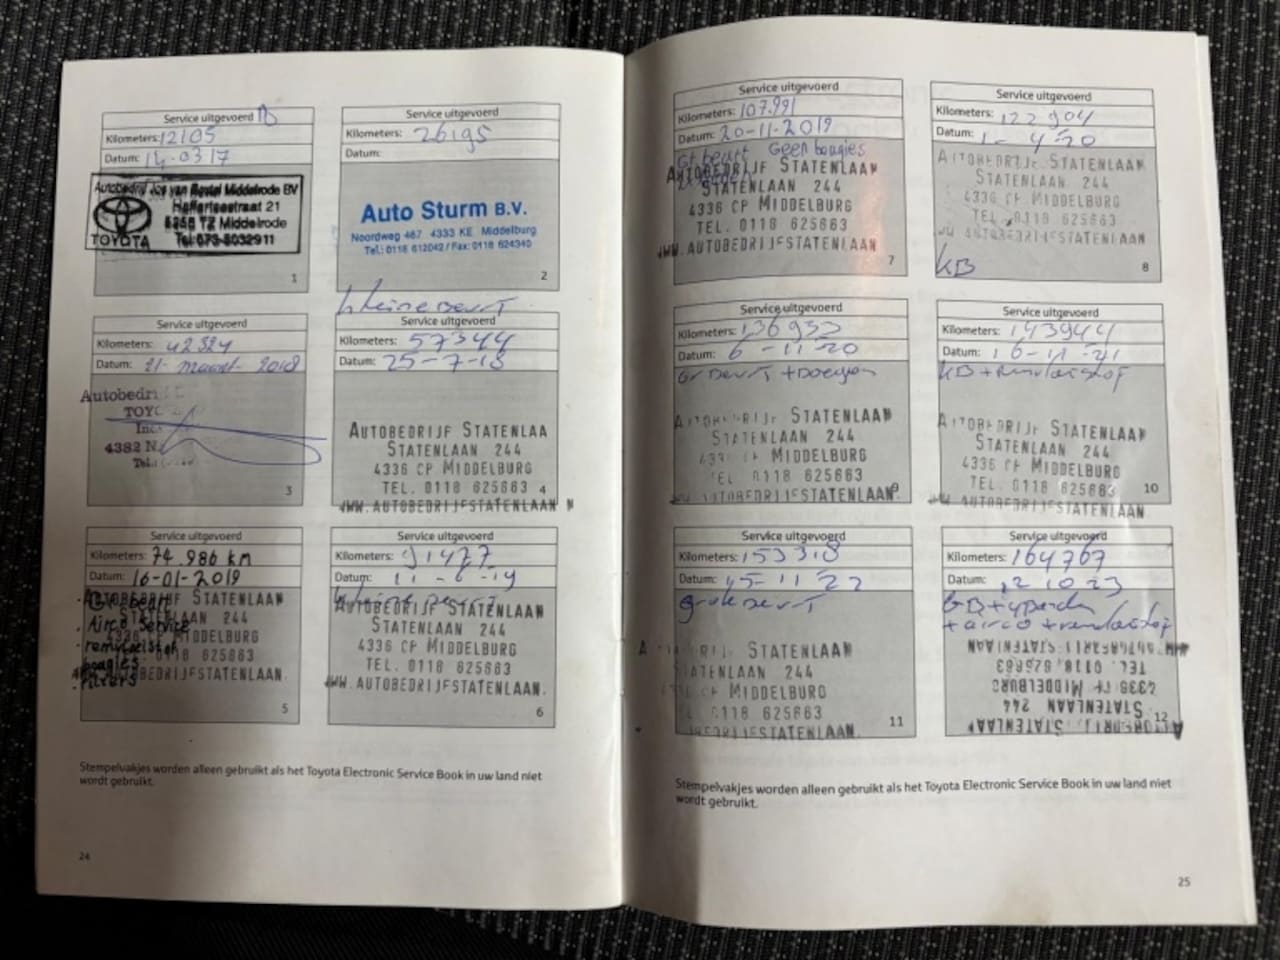 Service uitgevoerd
Kilometers: 12105
Datum: 14-0317
Autobedrijf Jos van Boxtel Middelrode BV
Helfertsestraat 21
5258 TZ Middelrode
TOYOTA
Tel: 073-5032911
1
Service uitgevoerd
Kilometers: 26195
Datum:
Auto Sturm B.V.
Noordweg 467 4333 KE Middelburg
Tel.: 0118 612042 / Fax: 0118 624340
2
Service uitgevoerd
Kilometers: 42324
Datum: 21 maart 2018
Autobedri
TOYO
4382 N
Tel.:
3
kleine beurt
Service uitgevoerd
Kilometers: 57344
Datum: 25-7-18
AUTOBEDRIJF STATENLAA
STATENLAAN 244
4336 CP MIDDELBURG
TEL. 0118 625663
4
WWW.AUTOBEDRIJFSTATENLAAN N
Service uitgevoerd
Kilometers: 74.986 km
Datum: 16-01-2019
AUTOBEDRIJF STATENLAAN
Gr beurt
STATENLAAN 244
. Airco Service
4336 CP MIDDELBURG
. remvloeistof
0118 625663
. bougies
WWW.AUTOBEDRIJFSTATENLAAN.
. filters
5
Service uitgevoerd
Kilometers: 91477
Datum: 11-6-19
kleine beurt
AUTOBEDRIJF STATENLAAN
STATENLAAN 244
4336 CP MIDDELBURG
TEL. 0118 625663
WWW.AUTOBEDRIJFSTATENLAAN.
6
Stempelvakjes worden alleen gebruikt als het Toyota Electronic Service Book in uw land niet
wordt gebruikt.
24
Service uitgevoerd
Kilometers: 107.991
Datum: 20-11-2019
Gr beurt Geen bougies
AUTOBEDRIJF STATENLAAN
STATENLAAN 244
4336 CP MIDDELBURG
TEL. 0118 625663
WWW.AUTOBEDRIJFSTATENLAAN
7
Service uitgevoerd
Kilometers: 122904
Datum: 1-4-20
AUTOBEDRIJF STATENLAAN
STATENLAAN 244
4336 CP MIDDELBURG
TEL. 0118 625663
WW.AUTOBEDRIJFSTATENLAAN
KB
8
Service uitgevoerd
Kilometers: 136933
Datum: 6-11-20
Gr beurt + bougies
AUTOBEDRIJF STATENLAAN
STATENLAAN 244
4336 CP MIDDELBURG
TEL 0118 625663
WWW.AUTOBEDRIJFSTATENLAAN.
9
Service uitgevoerd
Kilometers: 143944
Datum: 16-11-21
KB + remvloeistof
AUTOBEDRIJF STATENLAAN
STATENLAAN 244
4336 CP MIDDELBURG
TEL. 0118 625663
10
WWW.AUTOBEDRIJFSTATENLAAN
Service uitgevoerd
Kilometers: 153318
Datum: 15-11-22
grote beurt
AUTOBEDRIJF STATENLAAN
STATENLAAN 244
4336 CP MIDDELBURG
TEL. 0118 625663
11
AUTOBEDRIJFSTATENLAAN.
Service uitgevoerd
Kilometers: 164767
Datum: 12 10 23
+ airco + remvloeistof
AUTOBEDRIJF STATENLAAN
STATENLAAN 244
4336 CP MIDDELBURG
TEL. 0118 625663
WW.AUTOBEDRIJFSTATENLAAN
12
Stempelvakjes worden alleen gebruikt als het Toyota Electronic Service Book in uw land niet
wordt gebruikt.
25